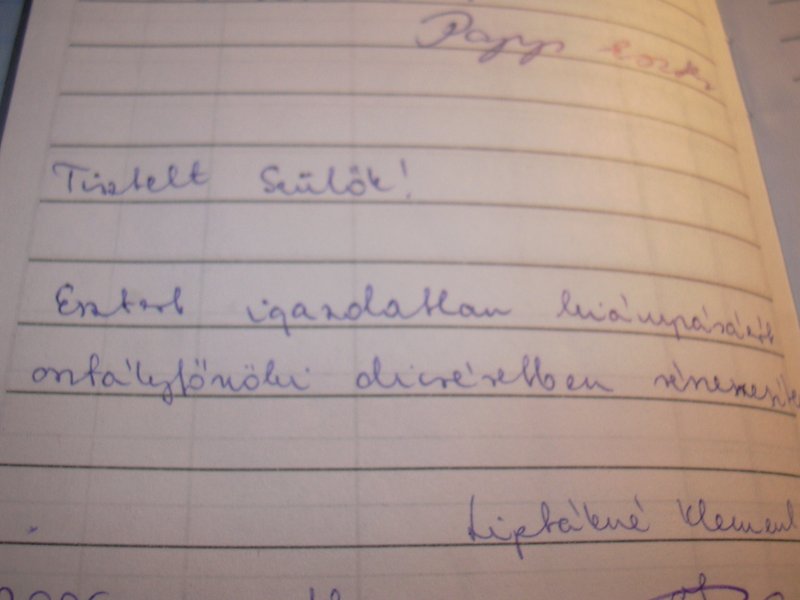 Papp Eszter
Tisztelt Szülők!
Esztert igazolatlan hiányzásáért
osztályfőnöki dicséretben részesítem
Liptákné Klement